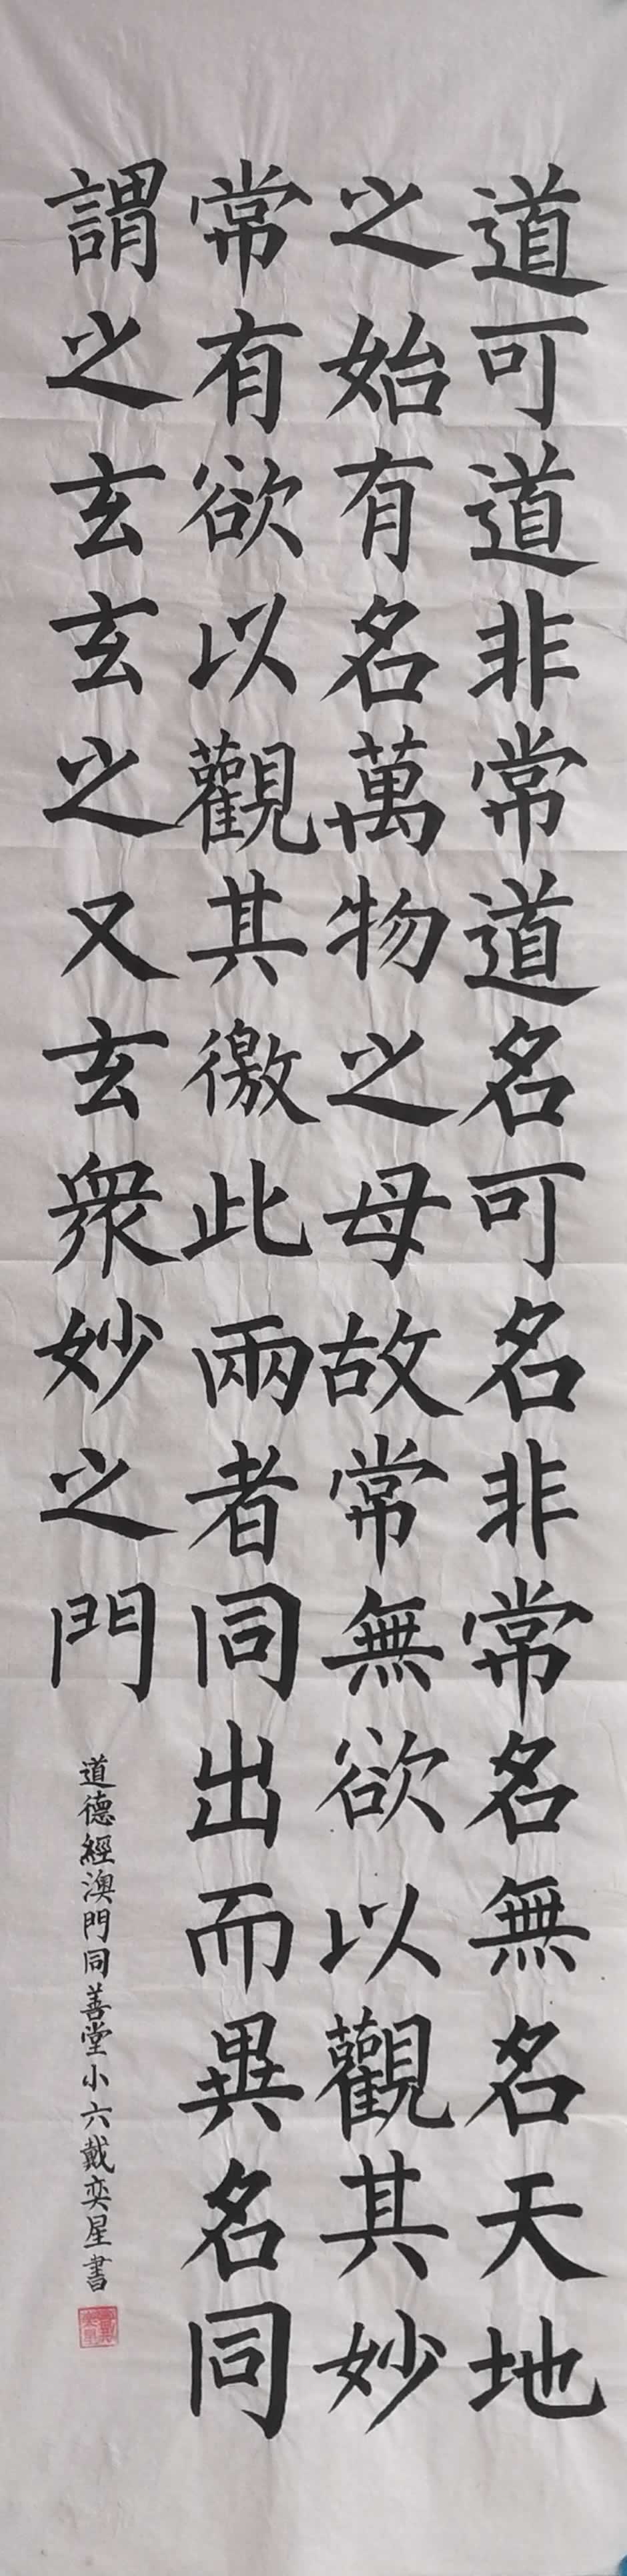 道可道非常道名可名非常名無名天地
之始有名萬物之母故常無欲以觀其妙
常有欲以觀其徼此兩者同出而異名同
謂之玄玄之又玄衆妙之門
道德經澳門同善堂小六戴奕星書